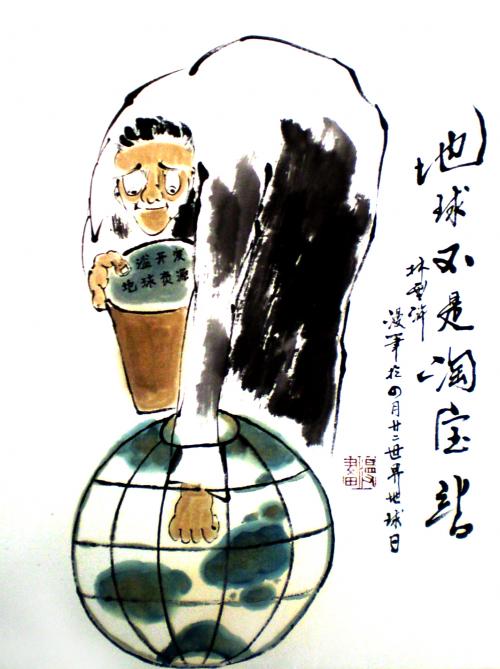 地球不是淘宝站
林
漫笔於四月廿二世界地球日
滥开发
地球资源
漫畫